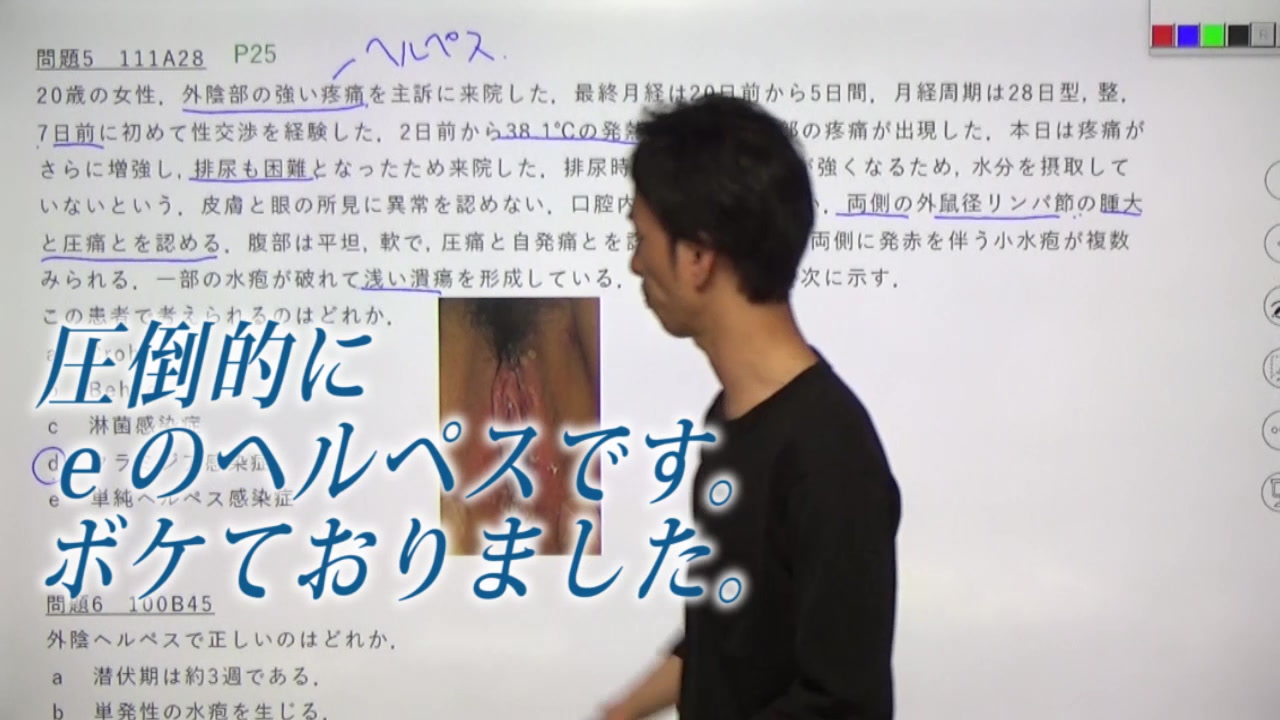 問題5 111A28 P25 ヘルペス.
20歳の女性.外陰部の強い疼痛を主訴に来院した.最終月経は20日前から5日間.月経周期は28日型,整.
7日前に初めて性交渉を経験した.2日前から38.1℃の発 部の疼痛が出現した.本日は疼痛が
さらに増強し,排尿も困難となったため来院した.排尿時 が強くなるため,水分を摂取して
いないという.皮膚と眼の所見に異常を認めない.口腔内 .両側の外鼠径リンパ節の腫大
と圧痛とを認める.腹部は平坦,軟で,圧痛と自発痛とを 両側に発赤を伴う小水疱が複数
みられる.一部の水疱が破れて浅い潰瘍を形成している. 次に示す.
この患者で考えられるのはどれか.
圧倒的に
c 淋菌感染症
eのヘルペスです。
d
e 単純ヘルペス感染症
ボケておりました。
問題6 100B45
外陰ヘルペスで正しいのはどれか.
a 潜伏期は約3週である.
b 単発性の水疱を生じる.